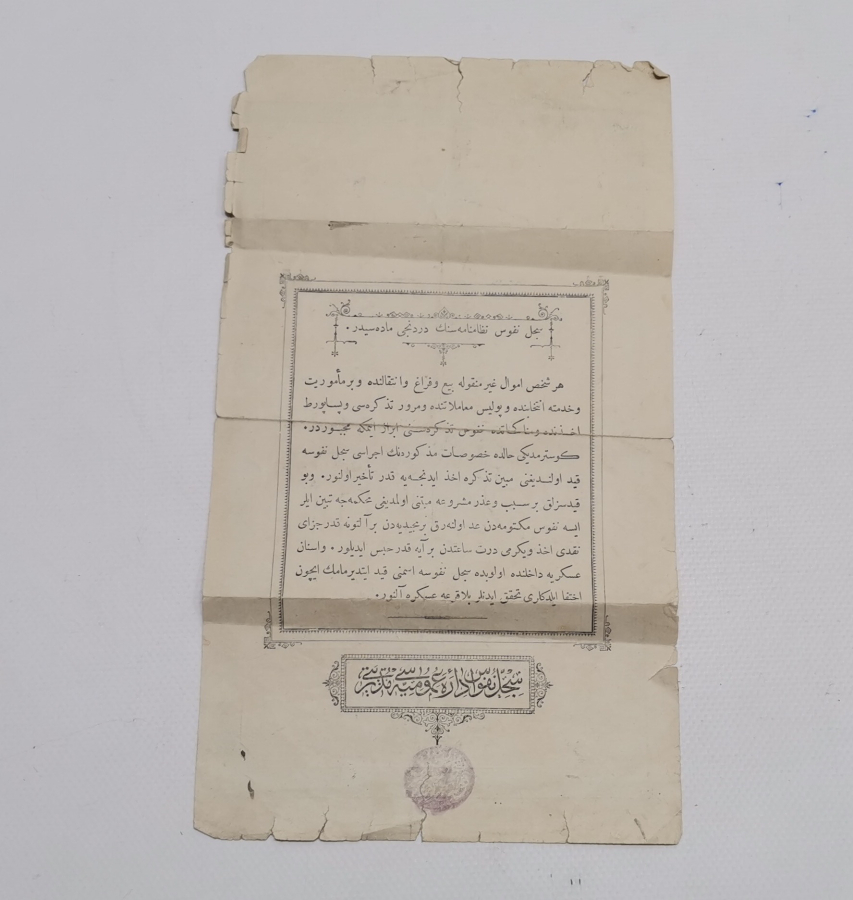 سجل نفوس نظامنامه‌سنك دردنجی ماده‌سیدر.
هر شخص اموال غیر منقوله بیع و فراغ وانتقالنده و بر مأموریت
وخدمته انتخابنده و پولیس معاملاتنده و مرور تذكره‌سی و پساپورط
اخذنده و مناكحاتده نفوس تذكره‌سنی ابراز ایتمكه مجبوردر.
كوسترمدیكی حالده خصوصات مذكوره‌نك اجراسی سجل نفوسه
قید اولندیغنی مبین تذكره اخذ ایدنجه‌یه قدر تأخیر اولنور. وبو
قیدسزلق بر سبب وعذر مشروعه مبتنی اولمدیغی محكمه‌جه تبین ایلر
ایسه نفوس مكتومه‌دن عد اولنه‌رق بر مجیدیه‌دن بر آلتونه قدر جزای
نقدی اخذ و یكرمی درت ساعتدن بر آیه قدر حبس ایدیلور. واسنان
عسكریه داخلنده اولوبده سجل نفوسه اسمنی قید ایتدیرمامك ایچون
اختفا ایلدكلری تحقق ایدنلر بلاقرعه عسكره آلنور.
سجل نفوس اداره عمومیه سی مدیریتی